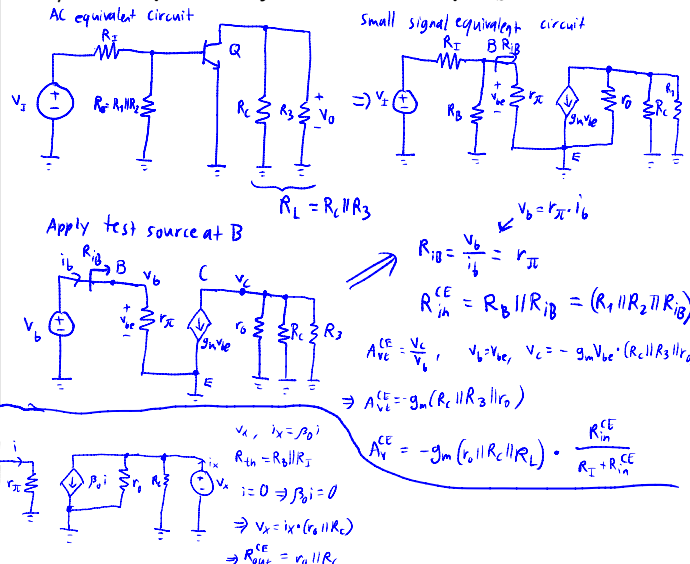 AC equivalent circuit
Small signal equivalent circuit
R_I
Q
V_I
R_B = R_1||R_2
R_C
R_3
+
V_O
-
R_L = R_C||R_3
⇒
V_I
R_I
B
R_iB
R_B
+
v_be
-
r_π
g_m v_be
r_o
R_C
R_3
E
Apply test source at B
i_b
R_iB
B
v_b
C
v_c
V_b
+
v_be
-
r_π
g_m v_be
r_o
R_C
R_3
E
v_b = r_π · i_b
R_iB = v_b / i_b = r_π
R_in^CE = R_B || R_iB = (R_1 || R_2 || R_iB)
A_vt^CE = v_c / v_b , v_b = v_be, v_c = - g_m v_be · (R_C || R_3 || r_o
⇒ A_vt^CE = -g_m (R_C || R_3 || r_o)
A_v^CE = -g_m (r_o || R_C || R_L) · R_in^CE / (R_I + R_in^CE)
i
r_π
β_o i
r_o
R_C
i_x
V_x
v_x, i_x = β_o i
R_th = R_B || R_I
i = 0 ⇒ β_o i = 0
⇒ v_x = i_x · (r_o || R_C)
⇒ R_out^CE = r_o || R_C